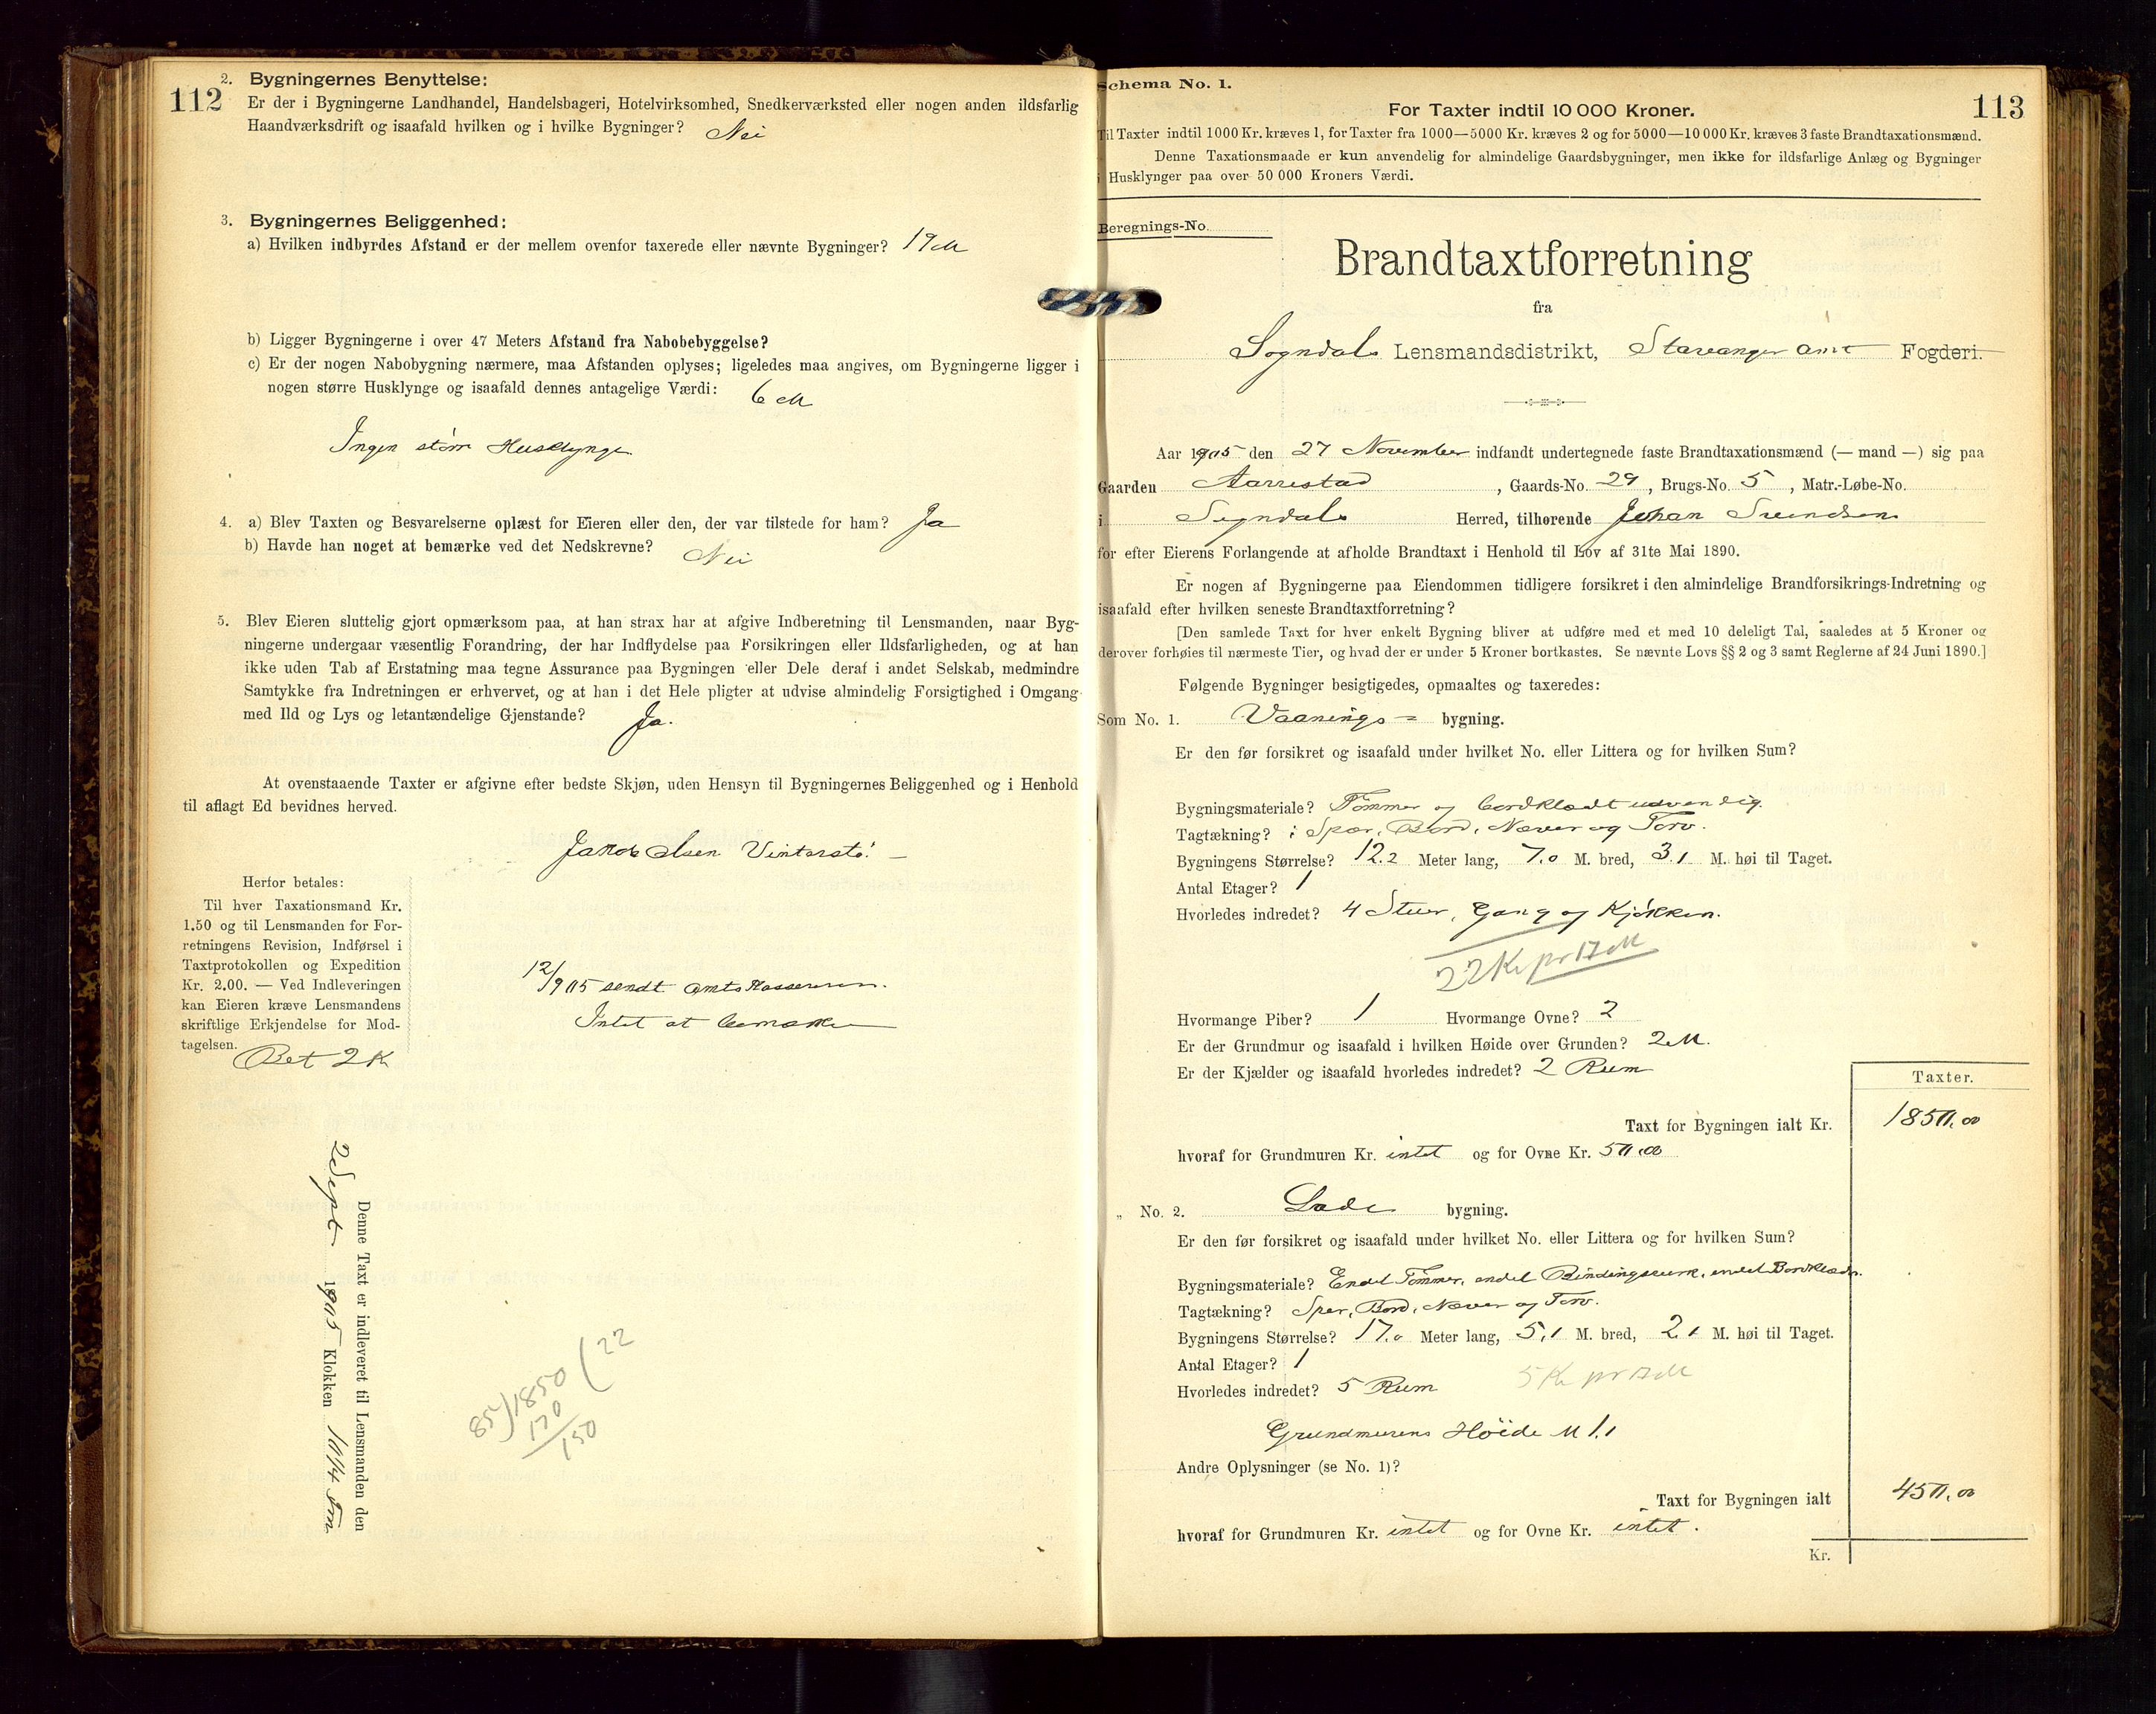 112
2. Bygningernes Benyttelse:
Er der i Bygningerne Landhandel, Handelsbageri, Hotelvirksomhed, Snedkerværksted eller nogen anden ildsfarlig
Haandværksdrift og isaafald hvilken og i hvilke Bygninger? Nei
3. Bygningernes Beliggenhed:
a) Hvilken indbyrdes Afstand er der mellem ovenfor taxerede eller nævnte Bygninger? 19 M
b) Ligger Bygningerne i over 47 Meters Afstand fra Nabobebyggelse?
c) Er der nogen Nabobygning nærmere, maa Afstanden oplyses; ligeledes maa angives, om Bygningerne ligger i
nogen større Husklynge og isaafald dennes antagelige Værdi: 6 M
Ingen større Husklynge
4. a) Blev Taxten og Besvarelserne oplæst for Eieren eller den, der var tilstede for ham? Ja
b) Havde han noget at bemærke ved det Nedskrevne? Nei
5. Blev Eieren sluttelig gjort opmærksom paa, at han strax har at afgive Indberetning til Lensmanden, naar Byg-
ningerne undergaar væsentlig Forandring, der har Indflydelse paa Forsikringen eller Ildsfarligheden, og at han
ikke uden Tab af Erstatning maa tegne Assurance paa Bygningen eller Dele deraf i andet Selskab, medmindre
Samtykke fra Indretningen er erhvervet, og at han i det Hele pligter at udvise almindelig Forsigtighed i Omgang
med Ild og Lys og letantændelige Gjenstande? Ja.
At ovenstaaende Taxter er afgivne efter bedste Skjøn, uden Hensyn til Bygningernes Beliggenhed og i Henhold
til aflagt Ed bevidnes herved.
Jakob Olsen Vinterstø.
Herfor betales:
Til hver Taxationsmand Kr.
1.50 og til Lensmanden for For-
retningens Revision, Indførsel i
Taxtprotokollen og Expedition
Kr. 2.00. — Ved Indleveringen
kan Eieren kræve Lensmandens
skriftlige Erkjendelse for Mod-
tagelsen.
Bet 2 K
12/9 05 sendt Amtskassereren.
Intet at bemærke
Denne Taxt er indleveret til Lensmanden den
2 Sept 1905 Klokken 10 1/4 Fm
85)1850(22
170
150
Schema No. 1.
113
For Taxter indtil 10 000 Kroner.
Til Taxter indtil 1000 Kr. kræves 1, for Taxter fra 1000—5000 Kr. kræves 2 og for 5000—10 000 Kr. kræves 3 faste Brandtaxationsmænd.
Denne Taxationsmaade er kun anvendelig for almindelige Gaardsbygninger, men ikke for ildsfarlige Anlæg og Bygninger
i Husklynger paa over 50 000 Kroners Værdi.
Beregnings-No.
Brandtaxtforretning
fra
Sogndals Lensmandsdistrikt, Stavanger amt Fogderi.
Aar 1905 den 27 November indfandt undertegnede faste Brandtaxationsmænd (— mand —) sig paa
Gaarden Aarrestad, Gaards-No. 29, Brugs-No. 5, Matr.-Løbe-No.
i Sogndals Herred, tilhørende Johan Svendsen
for efter Eierens Forlangende at afholde Brandtaxt i Henhold til Lov af 31te Mai 1890.
Er nogen af Bygningerne paa Eiendommen tidligere forsikret i den almindelige Brandforsikrings-Indretning og
isaafald efter hvilken seneste Brandtaxtforretning?
[Den samlede Taxt for hver enkelt Bygning bliver at udføre med et med 10 deleligt Tal, saaledes at 5 Kroner og
derover forhøies til nærmeste Tier, og hvad der er under 5 Kroner bortkastes. Se nævnte Lovs §§ 2 og 3 samt Reglerne af 24 Juni 1890.]
Følgende Bygninger besigtigedes, opmaaltes og taxeredes:
Som No. 1. Vaanings- bygning.
Er den før forsikret og isaafald under hvilket No. eller Littera og for hvilken Sum?
Bygningsmateriale? Tømmer og bordklædt udvendig
Tagtækning? Spær, Bord, Næver og Torv.
Bygningens Størrelse? 12.2 Meter lang, 7.0 M. bred, 3.1 M. høi til Taget.
Antal Etager? 1
Hvorledes indredet? 4 Stuer, Gang og Kjøkken.
22 Kr pr □ M
Hvormange Piber? 1 Hvormange Ovne? 2
Er der Grundmur og isaafald i hvilken Høide over Grunden? 2 M.
Er der Kjælder og isaafald hvorledes indredet? 2 Rum
Taxter.
Taxt for Bygningen ialt Kr. 1850.00
hvoraf for Grundmuren Kr. intet og for Ovne Kr. 50.00
„ No. 2. Lade bygning.
Er den før forsikret og isaafald under hvilket No. eller Littera og for hvilken Sum?
Bygningsmateriale? Endel Tømmer, endel Bindingsverk, endel Bordklædn.
Tagtækning? Spær, Bord, Næver og Torv.
Bygningens Størrelse? 17.0 Meter lang, 5.1 M. bred, 2.1 M. høi til Taget.
Antal Etager? 1
Hvorledes indredet? 5 Rum 5 Kr pr □ M
Grundmurens Høide M 1.1
Andre Oplysninger (se No. 1)?
Taxt for Bygningen ialt 450.00
hvoraf for Grundmuren Kr. intet og for Ovne Kr. intet.
Kr.